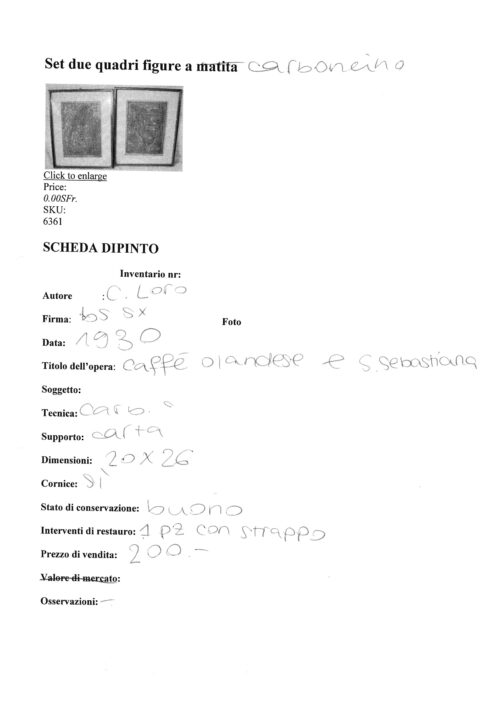 Set due quadri figure a matita carboncino
Click to enlarge
Price:
0.00SFr.
SKU:
6361
SCHEDA DIPINTO
Inventario nr:
Autore :C. Loro
Firma: bs sx
Foto
Data: 1930
Titolo dell'opera: Caffé olandese e S. Sebastiana
Soggetto:
Tecnica: Carb.
Supporto: carta
Dimensioni: 20 x 26
Cornice: Sì
Stato di conservazione: buono
Interventi di restauro: 1 pz con strappo
Prezzo di vendita: 200.-
Valore di mercato:
Osservazioni: —